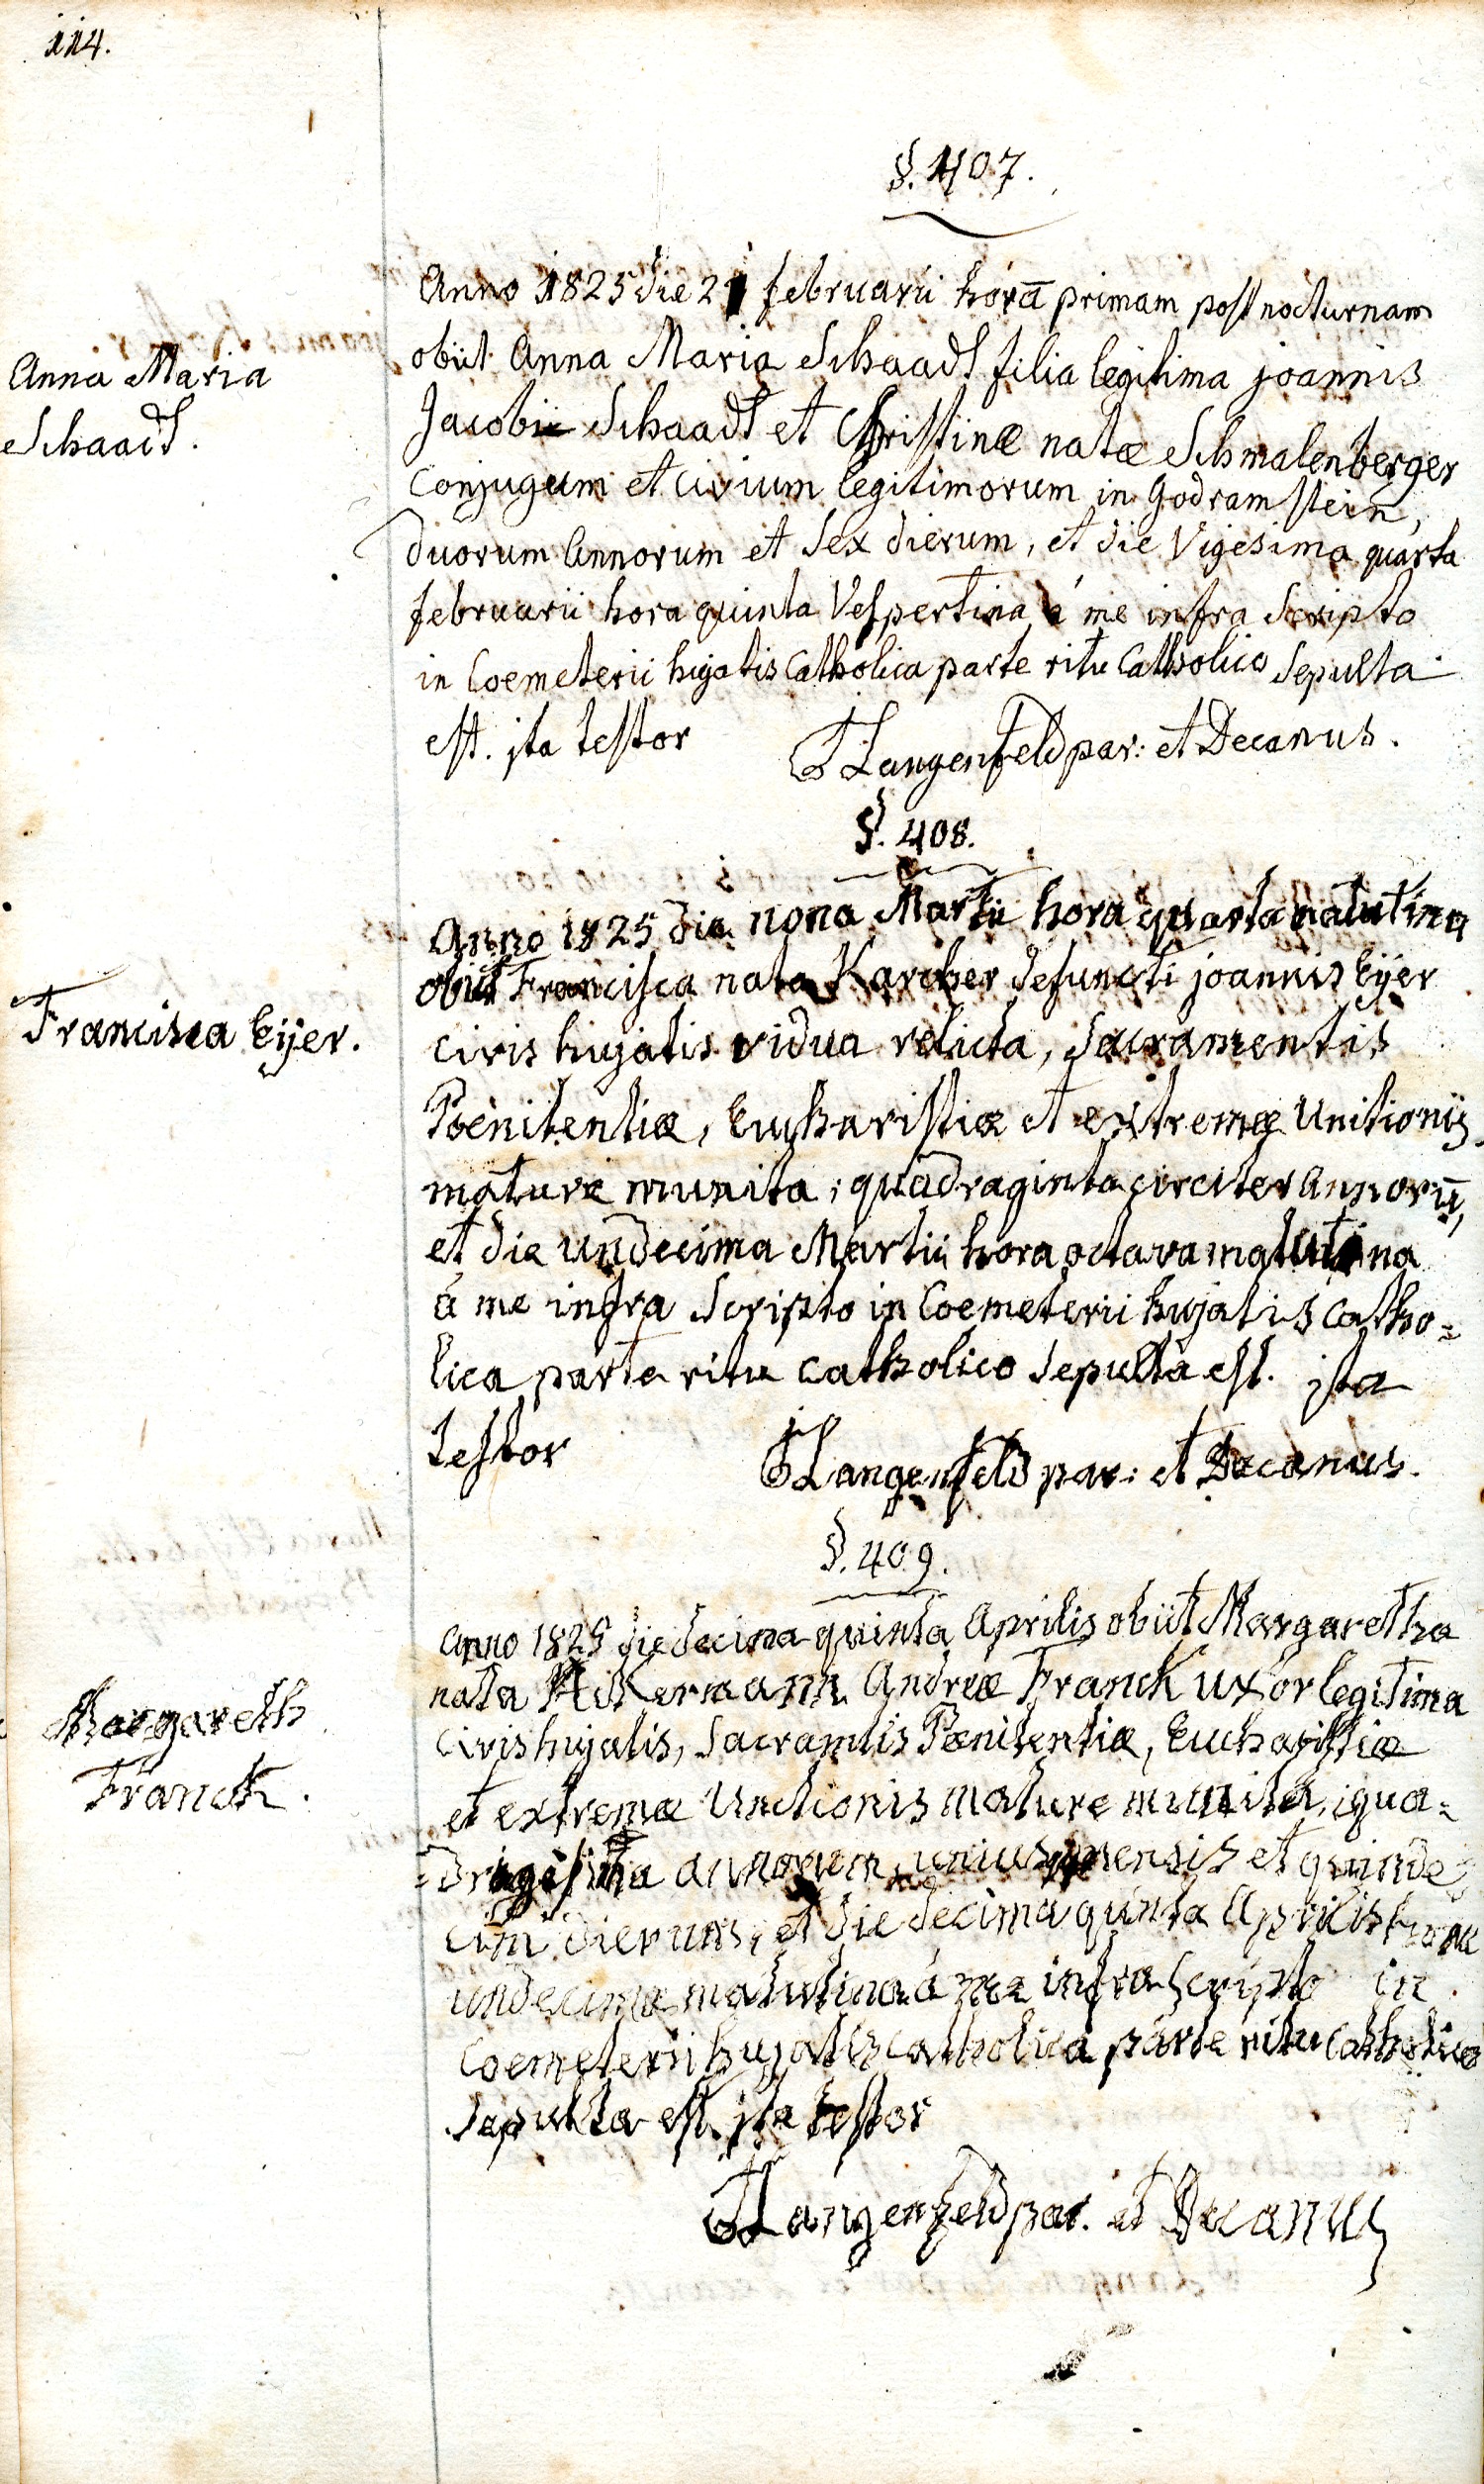 114.
§. 407.
Anna Maria
Schaadt.
Anno 1825 die 21 februarii horā primam post nocturnam
obiit Anna Maria Schaadt filia legitima joannis
Jacobi Schaadt et Christinæ natæ Schmalenberger
Conjugum et Civium legitimorum in Godramstein,
duorum Annorum et Sex dierum, et die Vigesima quarta
februarii hora quinta Vespertina á me infra Scripto
in Coemeterii hujatis Catholica parte ritu Catholico Sepulta
est. ita testor Langenfeld par: et Decanus.
§. 408.
Francisca Eÿer.
Anno 1825 die nona Martii hora quarta matutina
obiit Francisca nata Karcher defuncti joannis Eÿer
Civis hujatis vidua relicta, Sacramentis
Pœnitentiæ, Eucharistiæ et extremæ Unitionis
mature munita, quadraginta circiter Annorū,
et die undecima Martii hora octava matutina
á me infra Scripto in Coemeterii hujatis Catho=
lica parte ritu Catholico Sepulta est. ita
testor Langenfeld par: et Decanus.
§. 409.
Margareth
Franck.
Anno 1825 die decima quinta Aprilis obiit Margaretha
nata Andreæ Franck uxor legitima
Civis hujatis, Sacramtis Pænitentiæ, Eucharistiæ
et extremæ Unctionis mature munita, qua=
=dragesima annorum, unius mensis et quinde=
cim dierum, et die decima quinta Aprilis hora
undecima matutina á me infra Scripto in
Coemeterii hujatis catholica parte ritu Catholico
Sepulta est. ita testor
Langenfeld par. et Decanus